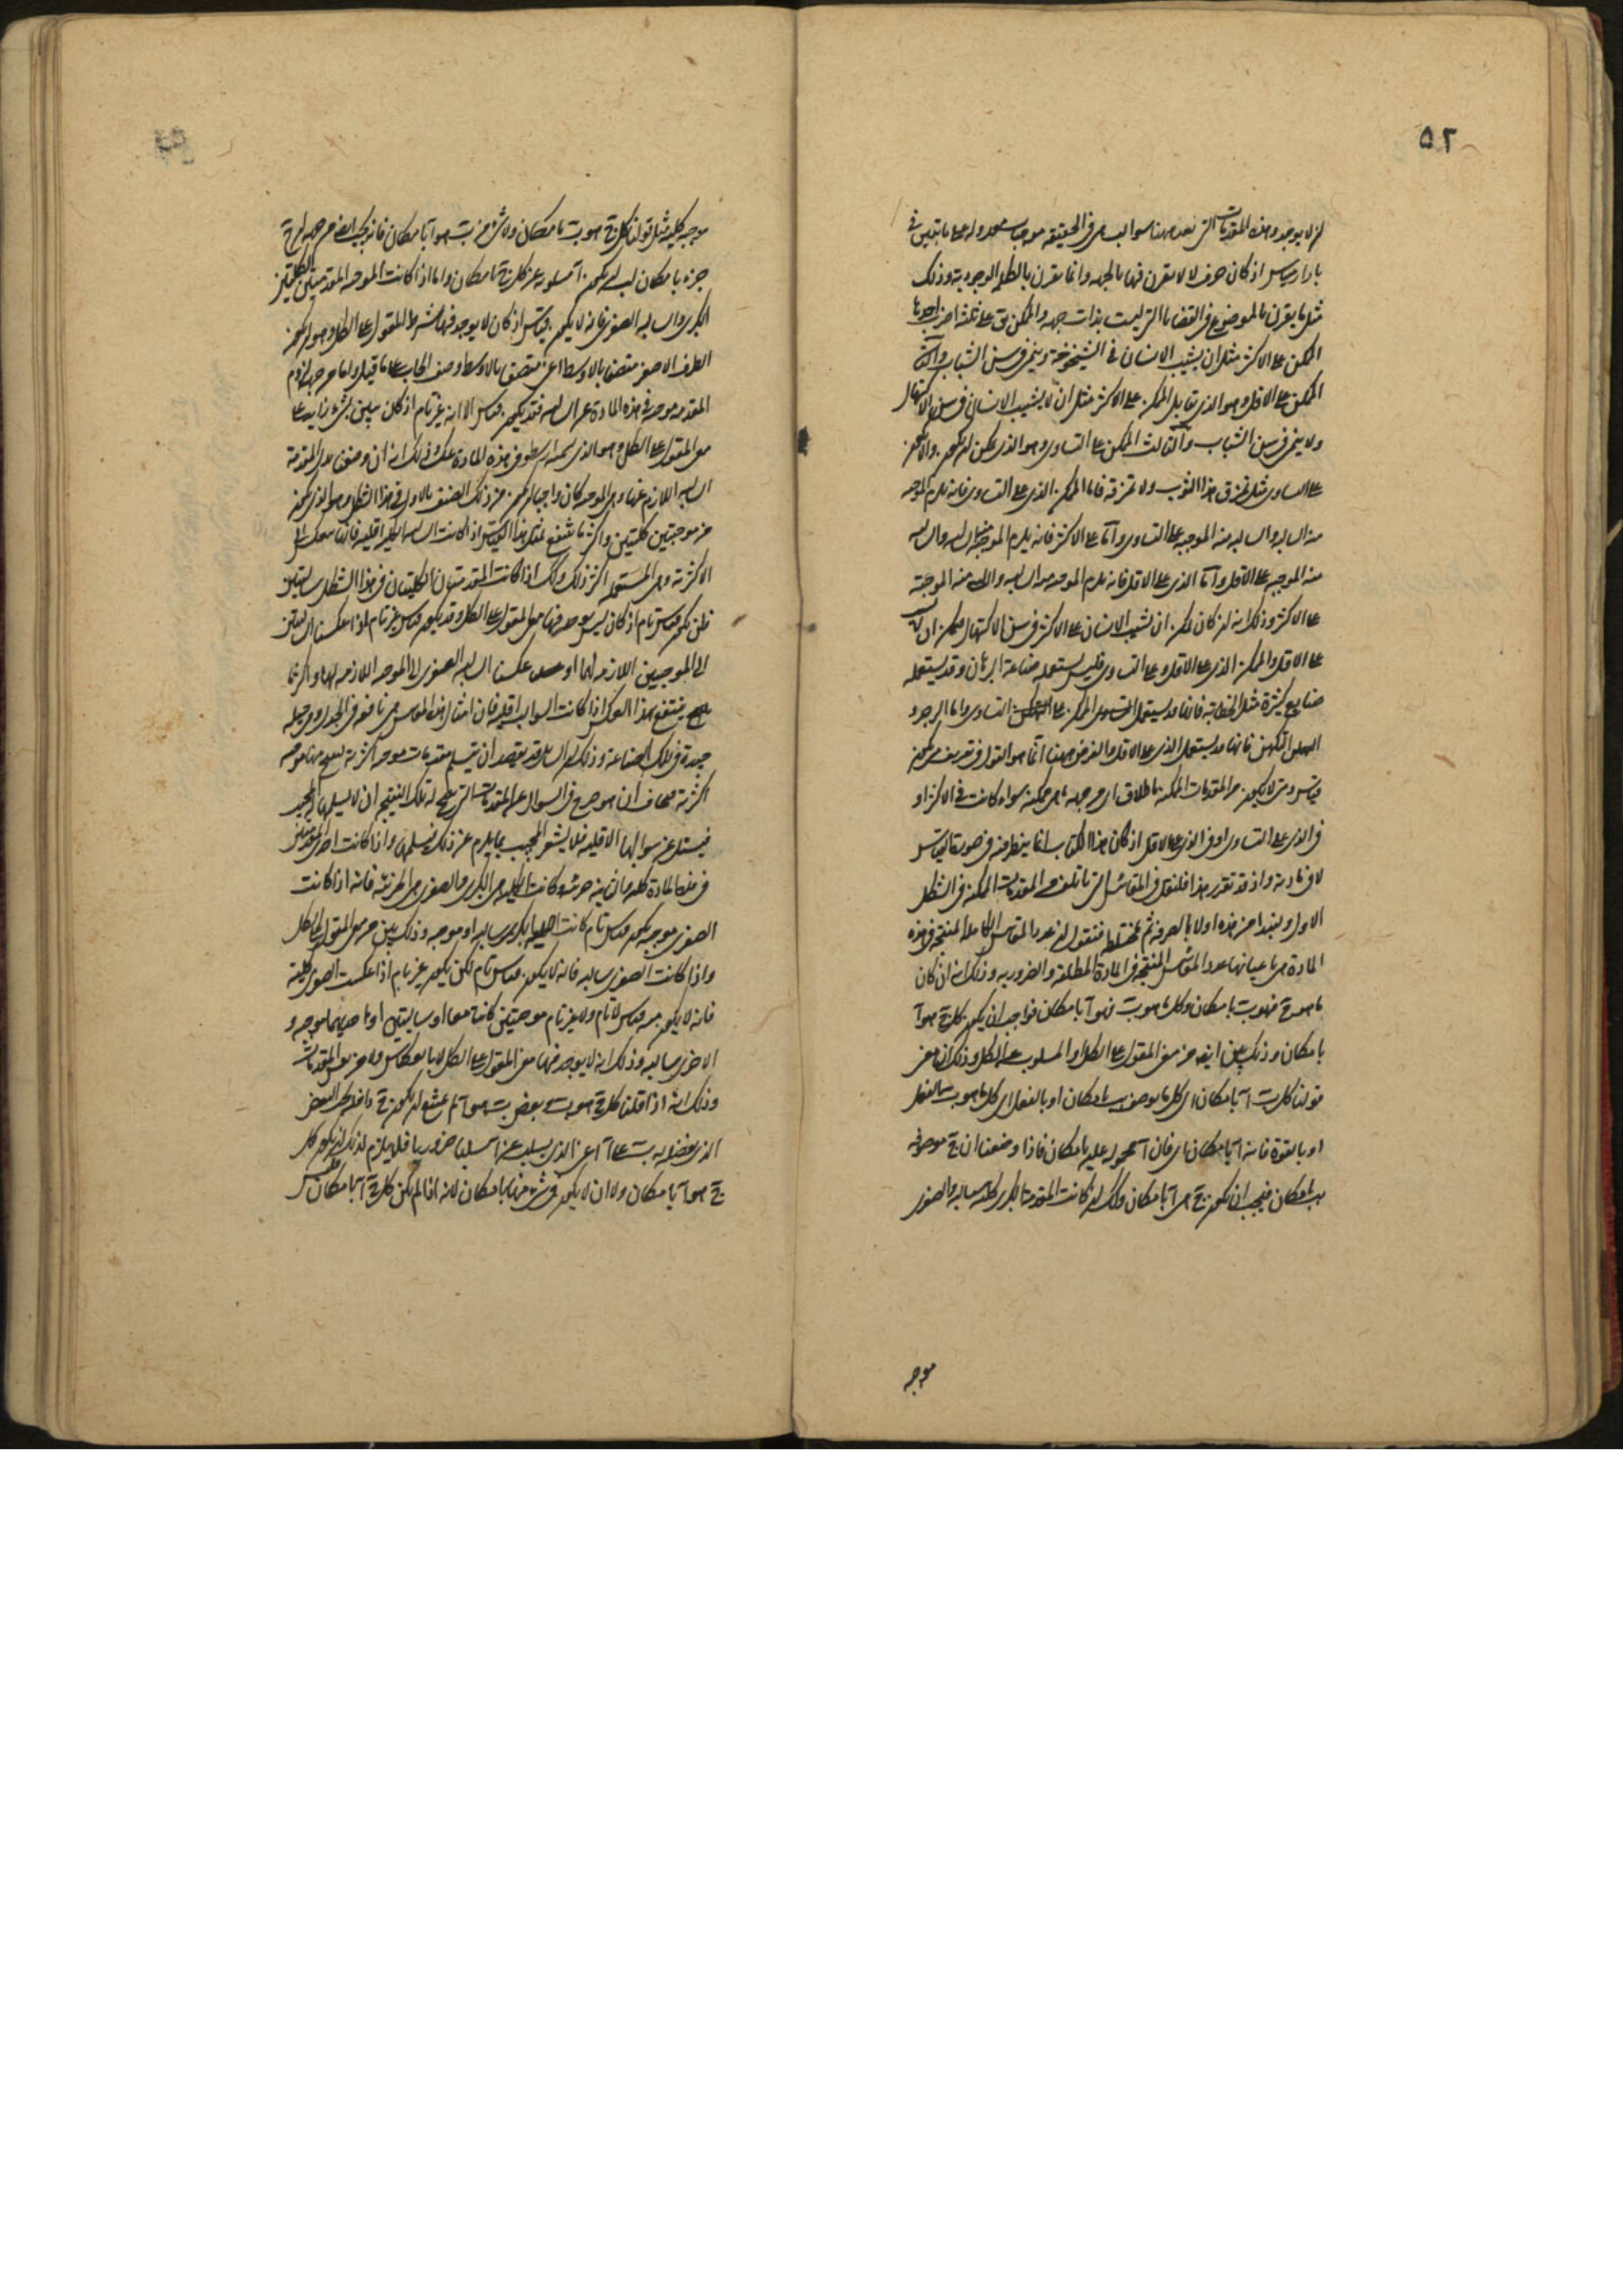 ٥٢
لن لا يوجد وهذه المقدمات التى تعد ههنا سوالب هى فى الحقيقه موجبات معدوله على ما تبين فى
بارارمينياس اذ كان حرف لا لا يقرن فيها بالجهه وانما يقرن بالكلم الوجوديه وذلك
مثل ما يقرن بالموضوع فى القضايا التى ليست بذات جهه والممكن يق على ثلثة اضرب احدها
الممكن على الاكثر مثل ان يشيب الانسان فى الشيخوخة وينمى فى سن الشباب والثانى
الممكن على الاقل وهو الذى يقابل الممكن على الاكثر مثل ان لا يشيب الانسان فى سن الاكتهال
ولا ينمى فى سن الشباب والثالث الممكن على التساوى وهو الذى يمكن ان يكون والا يكون
على التساوى مثل تمزق هذا الثوب ولا تمزقه فاما الممكن الذى على التساوى فانه يلزم الموجبه
منه السالبه والسالبه منه الموجبه على التساوى واما على الاكثر فانه يلزم الموجبه منه السالبه والسالبه
منه الموجبه على الاقل واما الذى على الاقل فانه يلزم الموجبه منه السالبه والسالبه منه الموجبة
على الاكثر وذلك انه ان كان يمكن ان يشيب الانسان على الاكثر فى سن الاكتهال فيمكن ان لا يشيب
على الاقل والممكن الذى على الاقل وعلى التساوى فليس يستعمله صناعة البرهان وقد يستعمله
صنايع كثيرة مثل الخطابة فانها قد يستعمل الممكن على التساوى واما الزجر و
التكهن فانها قد يستعمل الذى على الاقل والغرض ههنا انما هو القول فى تعريف متى يكون
قياس ومتى لا يكون من المقدمات الممكنه باطلاق اى من جهه ما هى ممكنه سواء كانت فى الاكثر او
فى الذى على التساوى او فى الذى على الاقل اذ كان هذا الكتاب انما ينظر منه فى صورة القياس
لا فى مادته واذ قد تقرر هذا فلنقل فى المقائيس التى تاتلف من المقدمات الممكنه فى الشكل
الاول ونبتدا من هذه اولا بالصرفه ثم المختلط فنقول ان عدد المقائيس الكاملة المنتجه فى هذه
المادة هى باعيانها عدد المقائيس المنتجه فى المادة المطلقه والضروريه وذلك انه ان كان
ما هو ج فهو ب بامكان وكل ما هو ب فهو آ بامكان فواجب ان يكون كل ج هو آ
بامكان وذلك بين ايضا من معنى المقول على الكل او المسلوب عن الكل وذلك ان معنى
قولنا كل ب آ بامكان اى كل ما يوصف ب بامكان او بالفعل اى كل ما هو ب بالفعل
او بالقوة فانه آ بامكان اى فان آ محموله عليه بامكان فاذا وضعنا ان ج موصوفه
ب بامكان فيجب ان يكون ج هى آ بامكان وكك ان كانت المقدمة الكبرى كليه سالبه والصغرى
موجبه
موجبه كليه مثل قولنا كل ج هو ب بامكان ولا شئ من ب هو آ بامكان فانه يجب ايضا من جهه ان ج
جزء ب بامكان ان يكون آ مسلوبه عن كل ج بامكان واما اذا كانت الموجبه المقدمتين الكليتين
الكبرى والسالبه الصغرى فانه لا يكون قياس اذ كان لا يوجد فيها شرط المقول على الكل وهو ان يكون
الطرف الاصغر متصفا بالاوسط اعنى متصف بالاوسط وصف ايجاب على ما قيل واما من جهه لزوم
المقدمه موجبه فى هذه المادة عن السالبه فقد يكون قياس الا انه غير تام اذ كان يبين بشئ زايد على
معنى المقول على الكل وهو الذى يسميه ارسطو فى هذه المادة عكسا وذلك انه ان وضعنا بدل المقدمة
السالبه اللازم عنها وهى الموجبه كان واجبا ان يكون من ذلك الصنف بالاول فى هذا الشكل وهو الذى يكون
من موجبتين كليتين واكثر ما ننتفع بمثل هذا القياس اذا كانت السالبه الكليه اقليه فانها تنعكس الى
الاكثريه وهى المستعمله اكثر ذلك وكك اذا كانت المقدمتان الكليتان فى هذا الشكل سالبتين
فلن يكون قياس تام اذ كان ليس يوجد فيها معنى المقول على الكل وقد يكون قياس غير تام اذا عكسنا السالبتين
الى الموجبتين اللازمه لهما او عكسنا السالبه الصغرى الى الموجبه اللازمه لها واكثر ما
ينتفع بهذا العكس اذا كانت السوالب اقليه فان امثال هذه المقائيس هى نافعه فى الجدل وحيله
جيدة فى تلك الصناعة وذلك ان السائل قد يقصد ان يتسلم مقدمات موجبه اكثريه لينتج منها موجبه
اكثريه فخاف ان هو صرح فى السوال عن المقدمات التى ينتج له تلك النتيجه ان لا يسلمها المجيب
فيسئل عن سوالبها الاقليه فلا يشعر المجيب بما يلزم عن ذلك فيسلمها واذا كانت احدى المقدمتين
فى هذه المادة كليه والثانيه جزئيه وكانت الكليه هى الكبرى والصغرى هى الجزئيه فانه اذا كانت
الصغرى موجبه يكون قياس تام كانت الكبرى سالبه او موجبه وذلك بين من معنى المقول على الكل
واذا كانت الصغرى سالبه فانه لا يكون قياس تام لكن يكون غير تام اذا عكست الصغرى كليه
فانه لا يكون منه قياس لا تام ولا غير تام موجبتين كانتا معا او سالبتين او احديهما موجبه و
الاخرى سالبه وذلك انه لا يوجد فيها معنى المقول على الكل لا بانعكاس ولا من نفس المقدمات
وذلك انه اذا قلنا كل ج هو ب وبعض ب هو آ لم يمتنع ان يكون ج داخله تحت البعض
الذى يفضل به ب على آ اعنى الذى يسلب عنه آ سلبا ضروريا فلا يلزم لذلك ان يكون كل
ج هو آ بامكان ولا ان لا يكون فى شئ منها بامكان لانه اذا لم يكن كل ج آ بامكان فليس